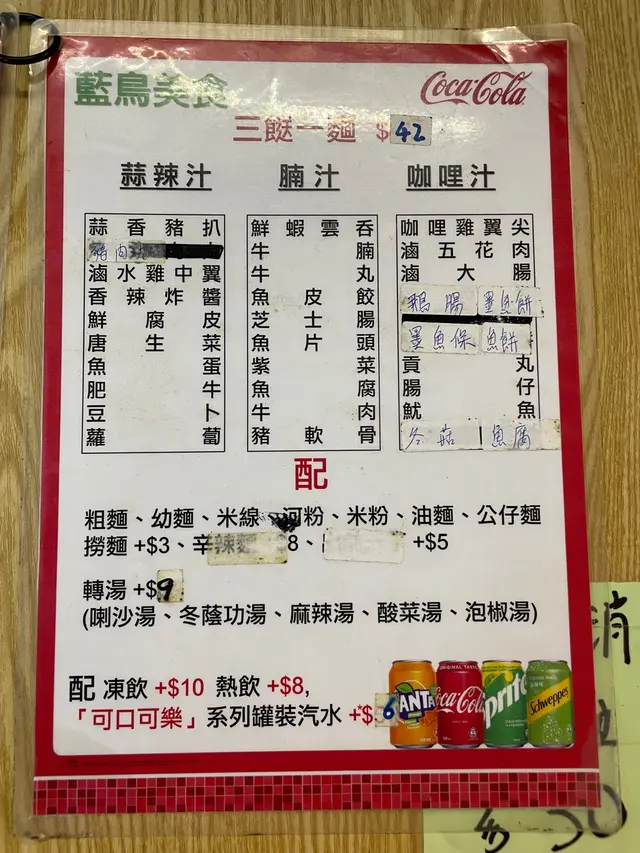 藍鳥美食
Coca-Cola
三餸一麵 $42
蒜辣汁
蒜香豬扒
豬肉
滷水雞中翼
香辣炸醬
鮮腐皮
唐生菜
魚蛋
肥牛
豆卜
蘿蔔
腩汁
鮮蝦雲吞
牛腩
牛丸
魚皮餃
芝士腸
魚片頭
紫菜
魚腐
牛肉
豬軟骨
咖哩汁
咖哩雞翼尖
滷五花肉
滷大腸
鵝腸 墨魚餅
墨魚 魚餅
貢丸
腸仔
魷魚
冬菇 魚腐
配
粗麵、幼麵、米線、河粉、米粉、油麵、公仔麵
撈麵 +$3、辛辣麵 8、 +$5
轉湯 +$9
(喇沙湯、冬蔭功湯、麻辣湯、酸菜湯、泡椒湯)
配 凍飲 +$10 熱飲 +$8,
「可口可樂」系列罐裝汽水 +$6
FANTA
ORIGINAL TASTE
Coca-Cola
Sprite
Schweppes
消
$50